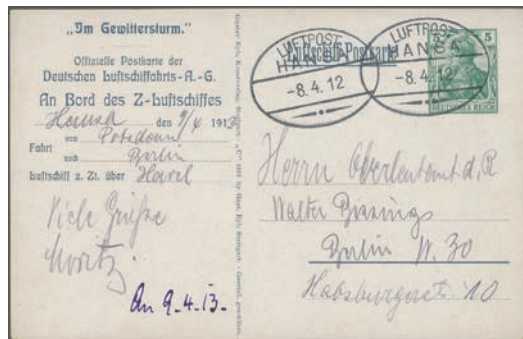 „Im Gewittersturm."
Offizielle Postkarte der
Deutschen Luftschiffahrts-A.-G.
An Bord des Z-Luftschiffes
Hansa den 9/4 1913
Fahrt von Potsdam
nach Berlin
Luftschiff z. Zt. über Havel
Viele Grüße
Moritz.
An 9.4.13.
LUFTPOST
HANSA
-8.4.12
LUFTPOST
HANSA
-8.4.12
Luftschiff-Postkarte
5 5
DEUTSCHES REICH
Herrn Oberleutnant d. R
Walter
Berlin W. 30
Habsburgerstr. 10